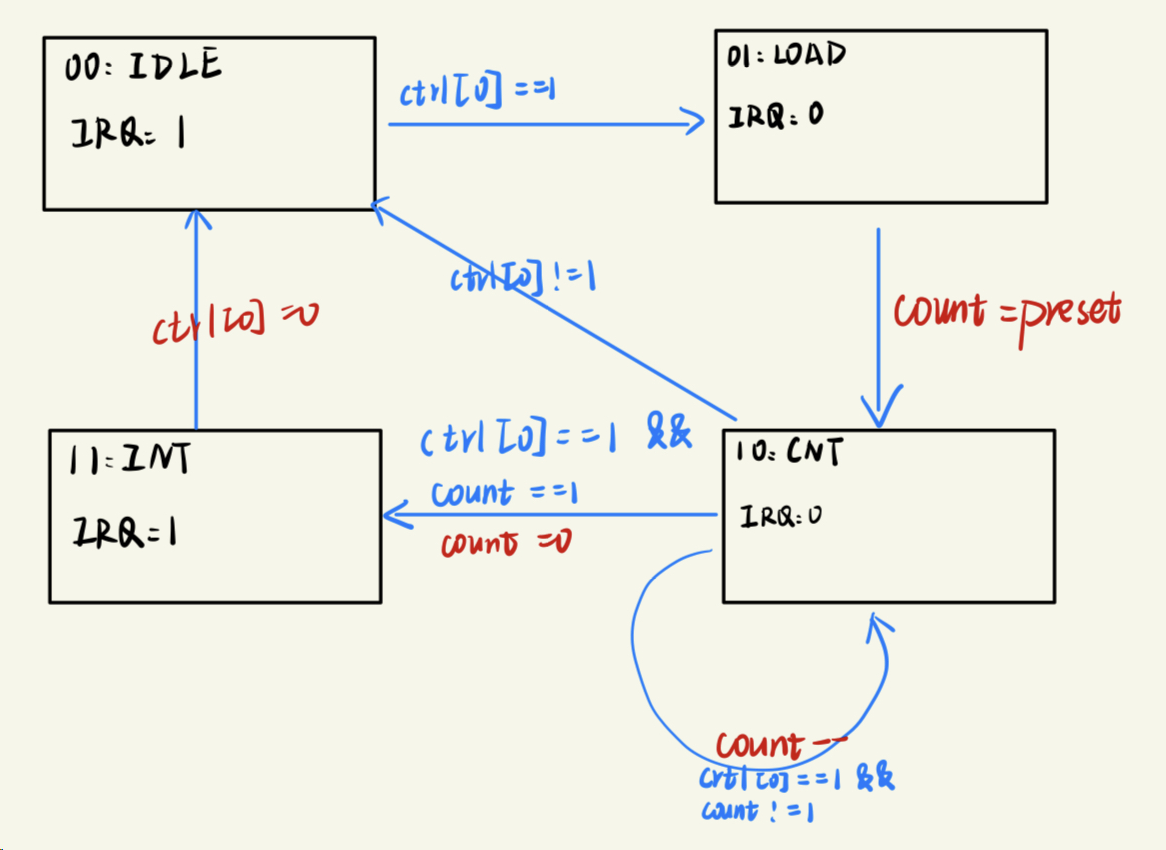 00: IDLE
IRQ= 1
ctrl[0]==1
01: LOAD
IRQ: 0
ctrl[0]!=1
ctrl[0]=0
count=preset
11:INT
IRQ=1
ctrl[0]==1 &&
count ==1
count =0
10: CNT
IRQ:0
count--
crtl[0]==1 &&
count !=1